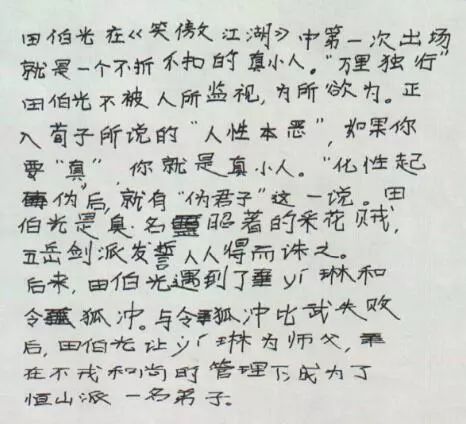 田伯光在《笑傲江湖》中第一次出场
就是一个不折不扣的真小人。“万里独行”
田伯光不被人所监视,为所欲为。正
入荀子所说的“人性本恶”,如果你
要“真”,你就是真小人。“化性起
伪”后,就有“伪君子”这一说。田
伯光是臭名昭著的采花贼,
五岳剑派发誓人人得而诛之。
后来,田伯光遇到了yí琳和
令狐冲。与令狐冲比武失败
后,田伯光让yí琳为师父,
在不戒和尚的管理下成为了
恒山派一名弟子。